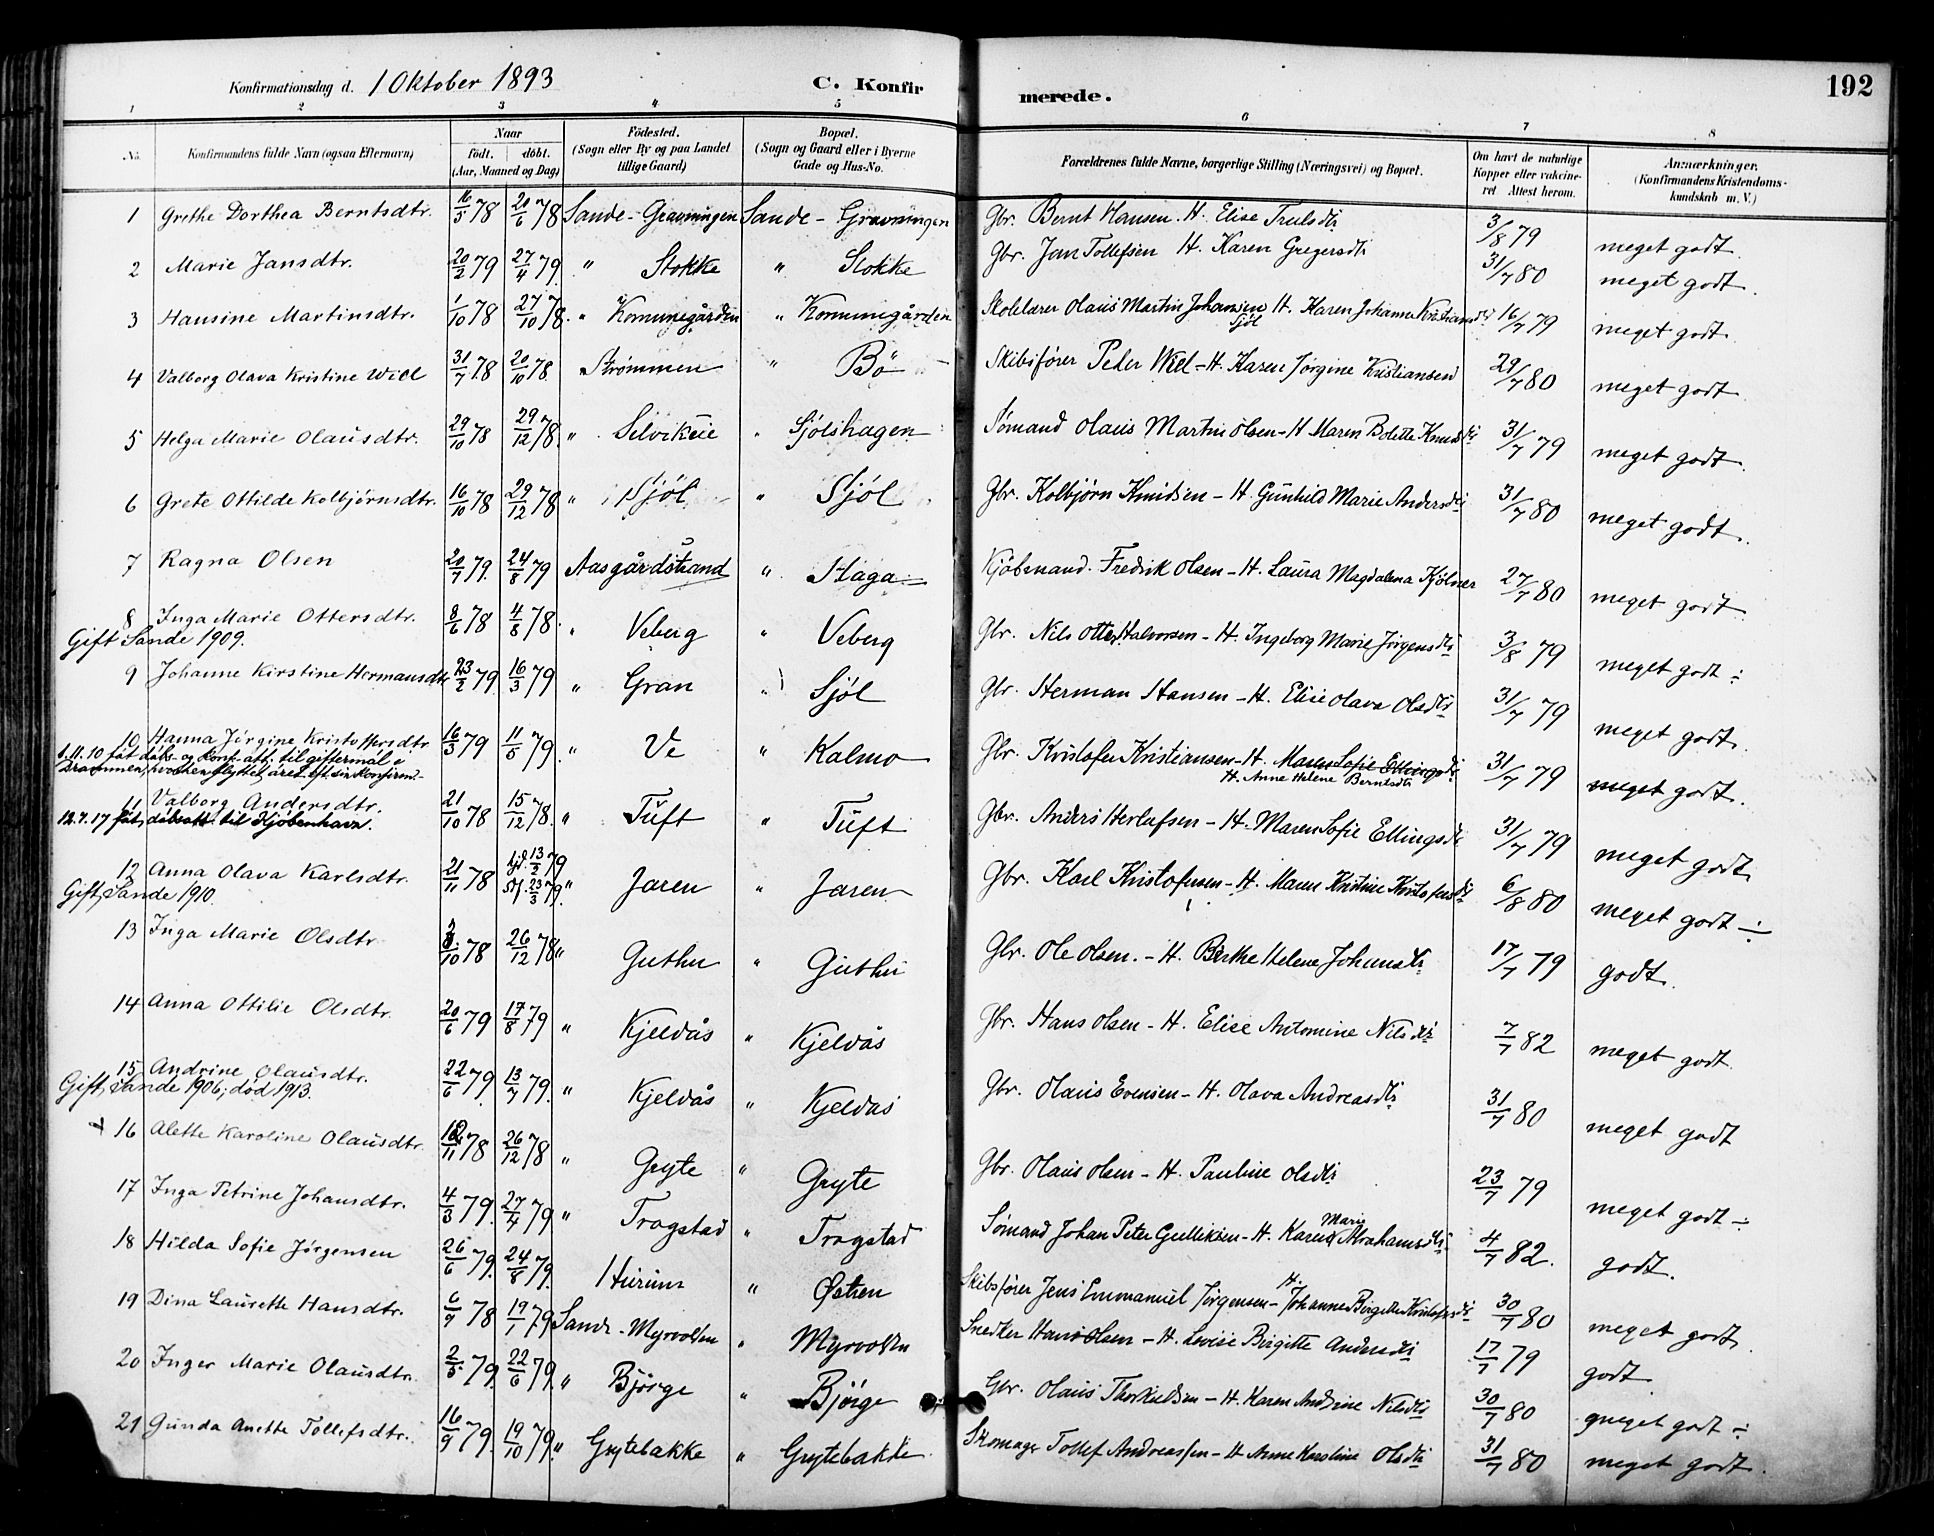 Konfirmationsdag d. 1 Oktober 1893 C. Konfirmerede. 192
1 2 3 4 5 6 7 8
No. Konfirmandens fulde Navn (ogsaa Efternavn) Naar födt. döbt. (Aar, Maaned og Dag) Födested. (Sogn eller By og paa Landet tillige Gaard) Bopæl. (Sogn og Gaard eller i Byerne Gade og Hus-No. Forældrenes fulde Navne, borgerlige Stilling (Næringsvei) og Bopæl. Om havt de naturlige Kopper eller vakcineret Attest herom. Anmærkninger. (Konfirmandens Kristendomskundskab m. V.)
1 Grethe Dorthea Berntsdtr. 16/5 78 20/6 78 Sande - Gravningen Sande - Gravningen Gbr. Bernt Hansen. H. Elise Trulsdtr 3/8 79 meget godt.
2 Marie Jansdtr. 20/2 79 27/4 79. " Stokke " Stokke Gbr. Jan Tollefsen H. Karen Gregersdtr 31/7 80 meget godt.
3 Hansine Martinsdtr. 1/10 78 27/10 78. " Komunegården " Komunegården Skolelærer Olaus Martin Johansen Sjöl H. Karen Johanne Kristiansdtr 16/7 79 meget godt.
4 Valborg Olava Kristine Wiel 31/7 78 20/10 78. " Strømmen " Bö Skibsfører Peder Wiel - H. Karen Jørgine Kristiansen 29/7 80 meget godt.
5 Helga Marie Olausdtr. 29/10 78 29/12 78. " Selvikeie " Sjölshagen Sömand Olaus Martin Olsen - H Maren Bolette Knudsdtr 31/7 79 meget godt.
6 Grete Ottilde Kolbjørnsdtr. 16/10 78 29/12 78 " Sjöl " Sjöl Gbr. Kolbjørn Knudsen - H. Gunhild Marie Andersdtr 31/7 80 meget godt.
7 Ragna Olsen 20/7 79. 24/8 79 Aasgårdstrand " Haga Kjöbmand. Fredrik Olsen - H. Laura Magdalena Kjölner 27/7 80 meget godt.
8 Inga Marie Ottersdtr. 8/6 78 4/8 78. " Veberg " Veberg Gbr. Nils Otter Halvorsen - H. Ingeborg Marie Jørgensdtr 3/8 79 meget godt ÷
Gift Sande 1909.
9 Johanne Kirstine Hermansdtr 23/2 79 16/3 79 " Gran " Sjöl Gbr. Herman Hansen - H. Elise Olava Olsdtr 31/7 79 meget godt.
10 Hanna Jørgine Kristoffersdtr 16/3 79 11/5 79. " Ve " Kalmo Gbr. Kristofer Kristiansen - H. Maren Sofie Ellingsdtr 31/7 79 meget godt.
H. Anne Helene Berntsdtr
1.11.10 fåt dåbs- og konf. att. til giftermal i
Drammen, hvorhen flyttet året eft. sin konfirm.
11 Valborg Andersdtr. 21/10 78 15/12 78. " Tuft " Tuft Gbr. Anders Herlofsen - H. Maren Sofie Ellingsdtr 31/7 79 meget godt
12.7.17 fåt dåbsatt. til Kjøbenhavn.
12 Anna Olava Karlsdtr. 21/11 78 hjd. 13/2 79 st. 23/3 79. " Jaren " Jaren Gbr. Karl Kristofersen - H. Maren Kristine Kristofersdtr 6/8 80 meget godt ÷
Gift, Sande 1910.
13 Inga Marie Olsdtr. /10 78 26/12 78 " Guthu " Guthu Gbr. Ole Olsen. - H. Berthe Helene Johansdtr 17/7 79 godt.
14 Anna Ottilie Olsdtr. 20/6 79 17/8 79 " Kjeldås " Kjeldås Gbr. Hans Olsen - H. Elise Antomine Nilsdtr 7/7 82 meget godt.
15 Andrine Olausdtr. 22/6 79. 13/7 79. " Kjeldås " Kjeldås Gbr. Olaus Evensen - H. Olava Andreasdtr 31/7 80 meget godt
Gift, Sande 1906; död 1913.
16 Alette Karoline Olausdtr. /11 78 26/12 78 " Gryte " Gryte Gbr. Olaus Olsen - H. Pauline Olsdtr 23/7 79 meget godt ÷
17 Inga Petrine Johansdtr. 4/3 79. 27/4 79. " Tragstad " Tragstad Sömand Johan Peter Gulliksen - H. Karen Marie Abrahamsdtr 4/7 82. godt.
18 Hilda Sofie Jørgensen 26/6 79. 24/8 79. Hurum " Østren Skibsfører Jens Emmanuel Jørgensen - H. Johanne Birgitte Kristofersdtr 30/7 80 meget godt.
19 Dina Laurette Hansdtr. 6/9 78 19/1 79 Sande - Myrvolden " Myrvolden Snedker Hans Olsen - H. Lovise Birgitte Andersdtr 17/7 79 godt
20 Inger Marie Olausdtr. 2/5 79. 22/6 79. " Bjørge " Bjørge Gbr. Olaus Thorkildsen - H. Karen Andrine Nilsdtr 30/7 80 meget godt ÷
21 Gunda Anette Tollefsdtr. 16/9 79. 19/10 79. " Grytebakke " Grytebakke Skomager Tollef Andreassen - H Anne Karoline Olsdtr 31/7 80 meget godt.